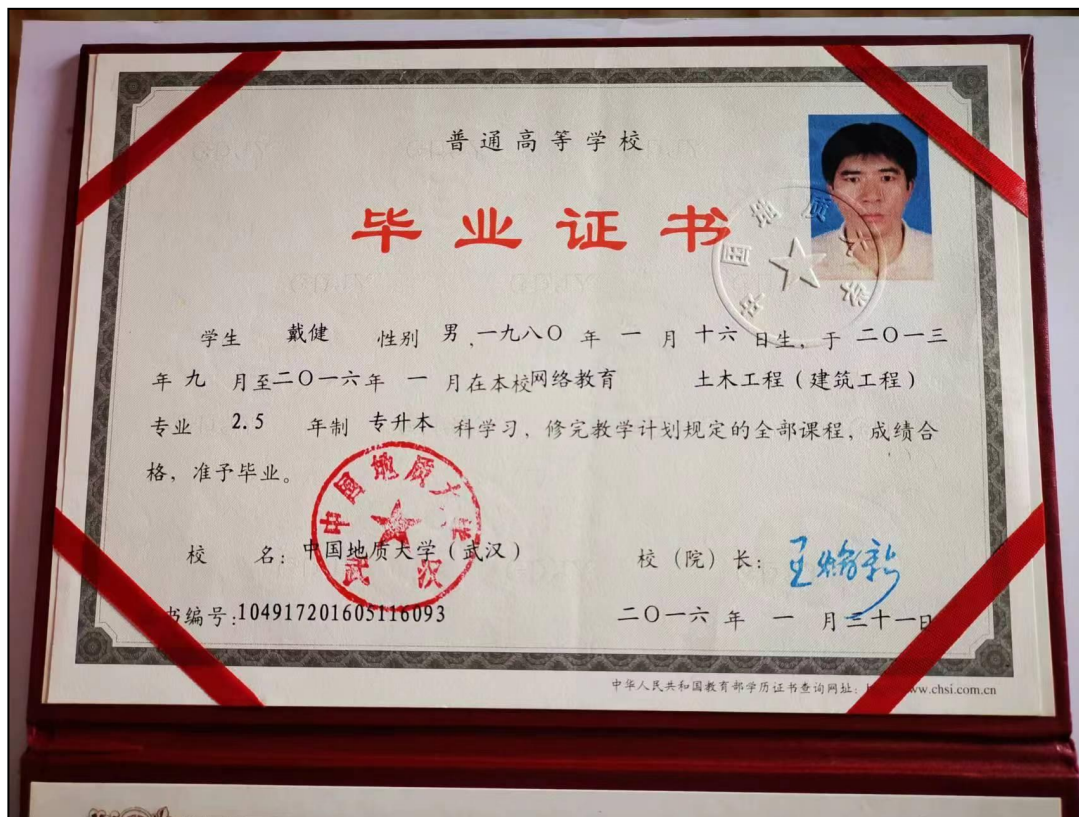 普通高等学校
毕业证书
学生 戴健 性别 男,一九八〇 年 一 月 十六 日生,于 二〇一三
年 九 月至二〇一六年 一 月在本校网络教育 土木工程(建筑工程)
专业 2.5 年制 专升本 科学习,修完教学计划规定的全部课程,成绩合
格,准予毕业。
中国地质大学
中国地质大学
武汉
校 名:中国地质大学(武汉)
校(院)长:
书编号:104917201605116093
二〇一六 年 一 月三十一日
中华人民共和国教育部学历证书查询网址:ww.chsi.com.cn